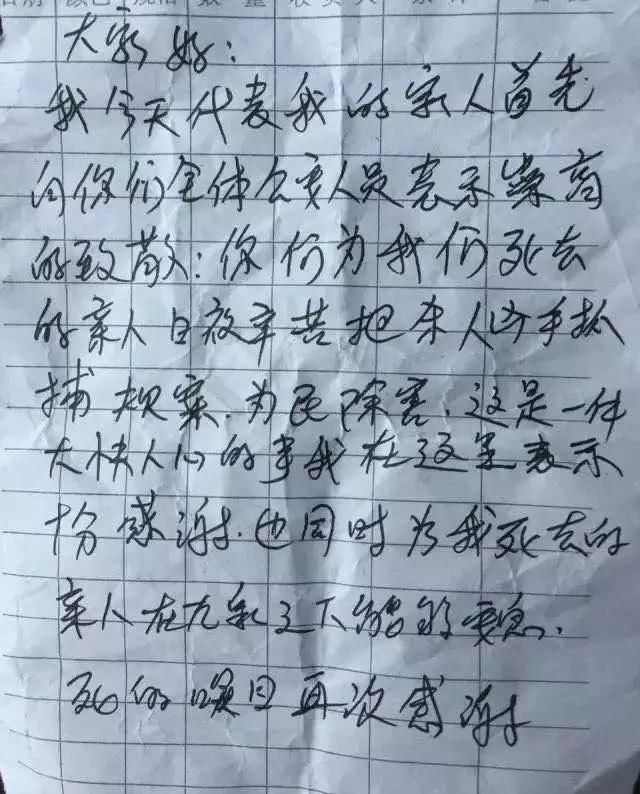 大家好：
我今天代表我的家人首先
向你们全体公安人员表示崇高
的致敬：你们为我们死去
的亲人日夜辛苦把杀人凶手抓
捕规案.为民除害.这是一件
大快人心的事我在这里表示
十分感谢.也同时为我死去的
亲人在九泉之下能够安息.
死的瞑目再次感谢